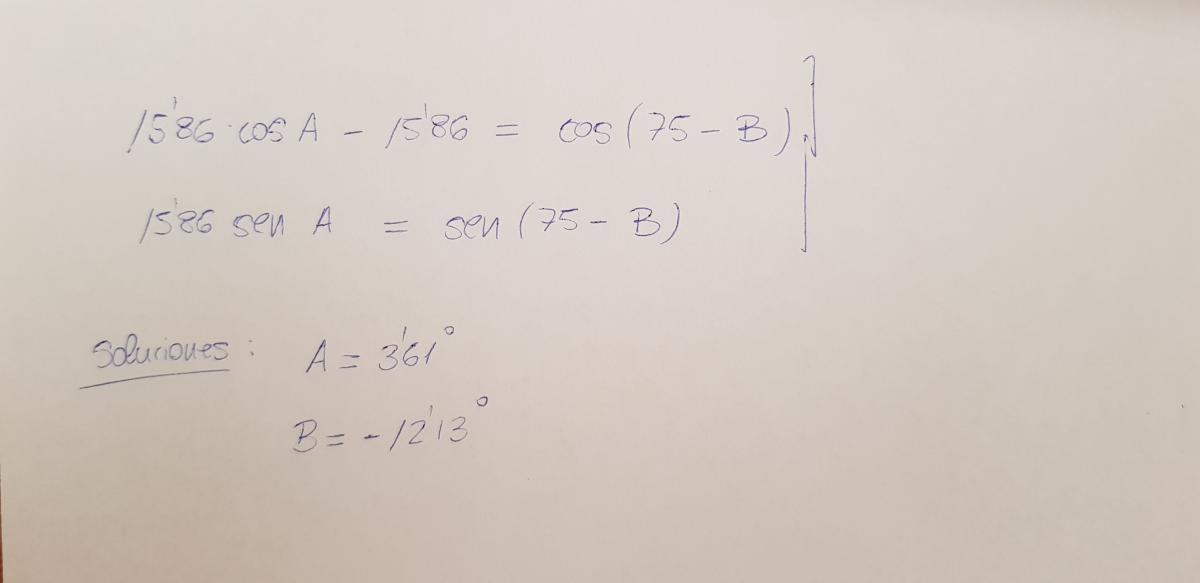 15'86·cos A - 15'86 = cos(75 - B)
15'86 sen A = sen(75 - B)
Soluciones: A = 3'61°
B = -12'13°